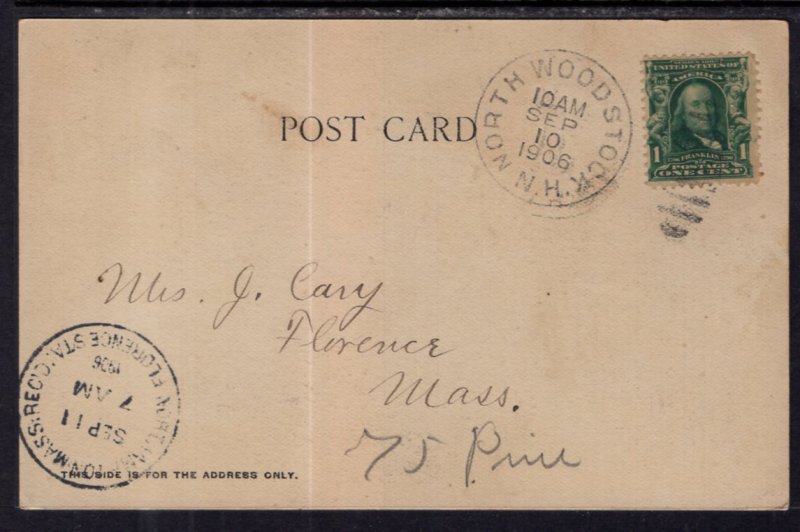 POST CARD
NORTH WOODSTOCK
N.H.
10 AM
SEP
10
1906
SERIES 1902
UNITED STATES OF
AMERICA
1 FRANKLIN 1
POSTAGE
ONE CENT
Mrs. J. Cary
Florence
Mass.
75 Pine
NORTHAMPTON MASS. REC'D.
FLORENCE STA.
SEP 11
7 AM
1906
THIS SIDE IS FOR THE ADDRESS ONLY.